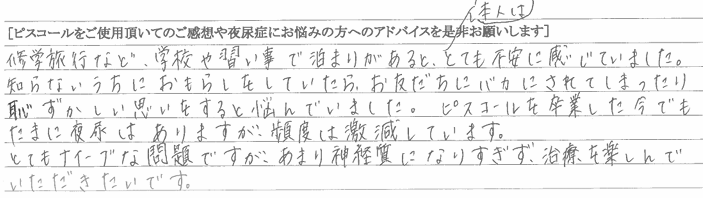 本人は
[ピスコールをご使用頂いてのご感想や夜尿症にお悩みの方へのアドバイスを是非お願いします]
修学旅行など、学校や習い事で泊まりがあると、とても不安に感じていました。
知らないうちにおもらしをしていたら、お友だちにバカにされてしまったり
恥ずかしい思いをすると悩んでいました。 ピスコールを卒業した今でも
たまに夜尿はありますが、頻度は激減しています。
とてもナイーブな問題ですが、あまり神経質になりすぎず、治療を楽しんで
いただきたいです。